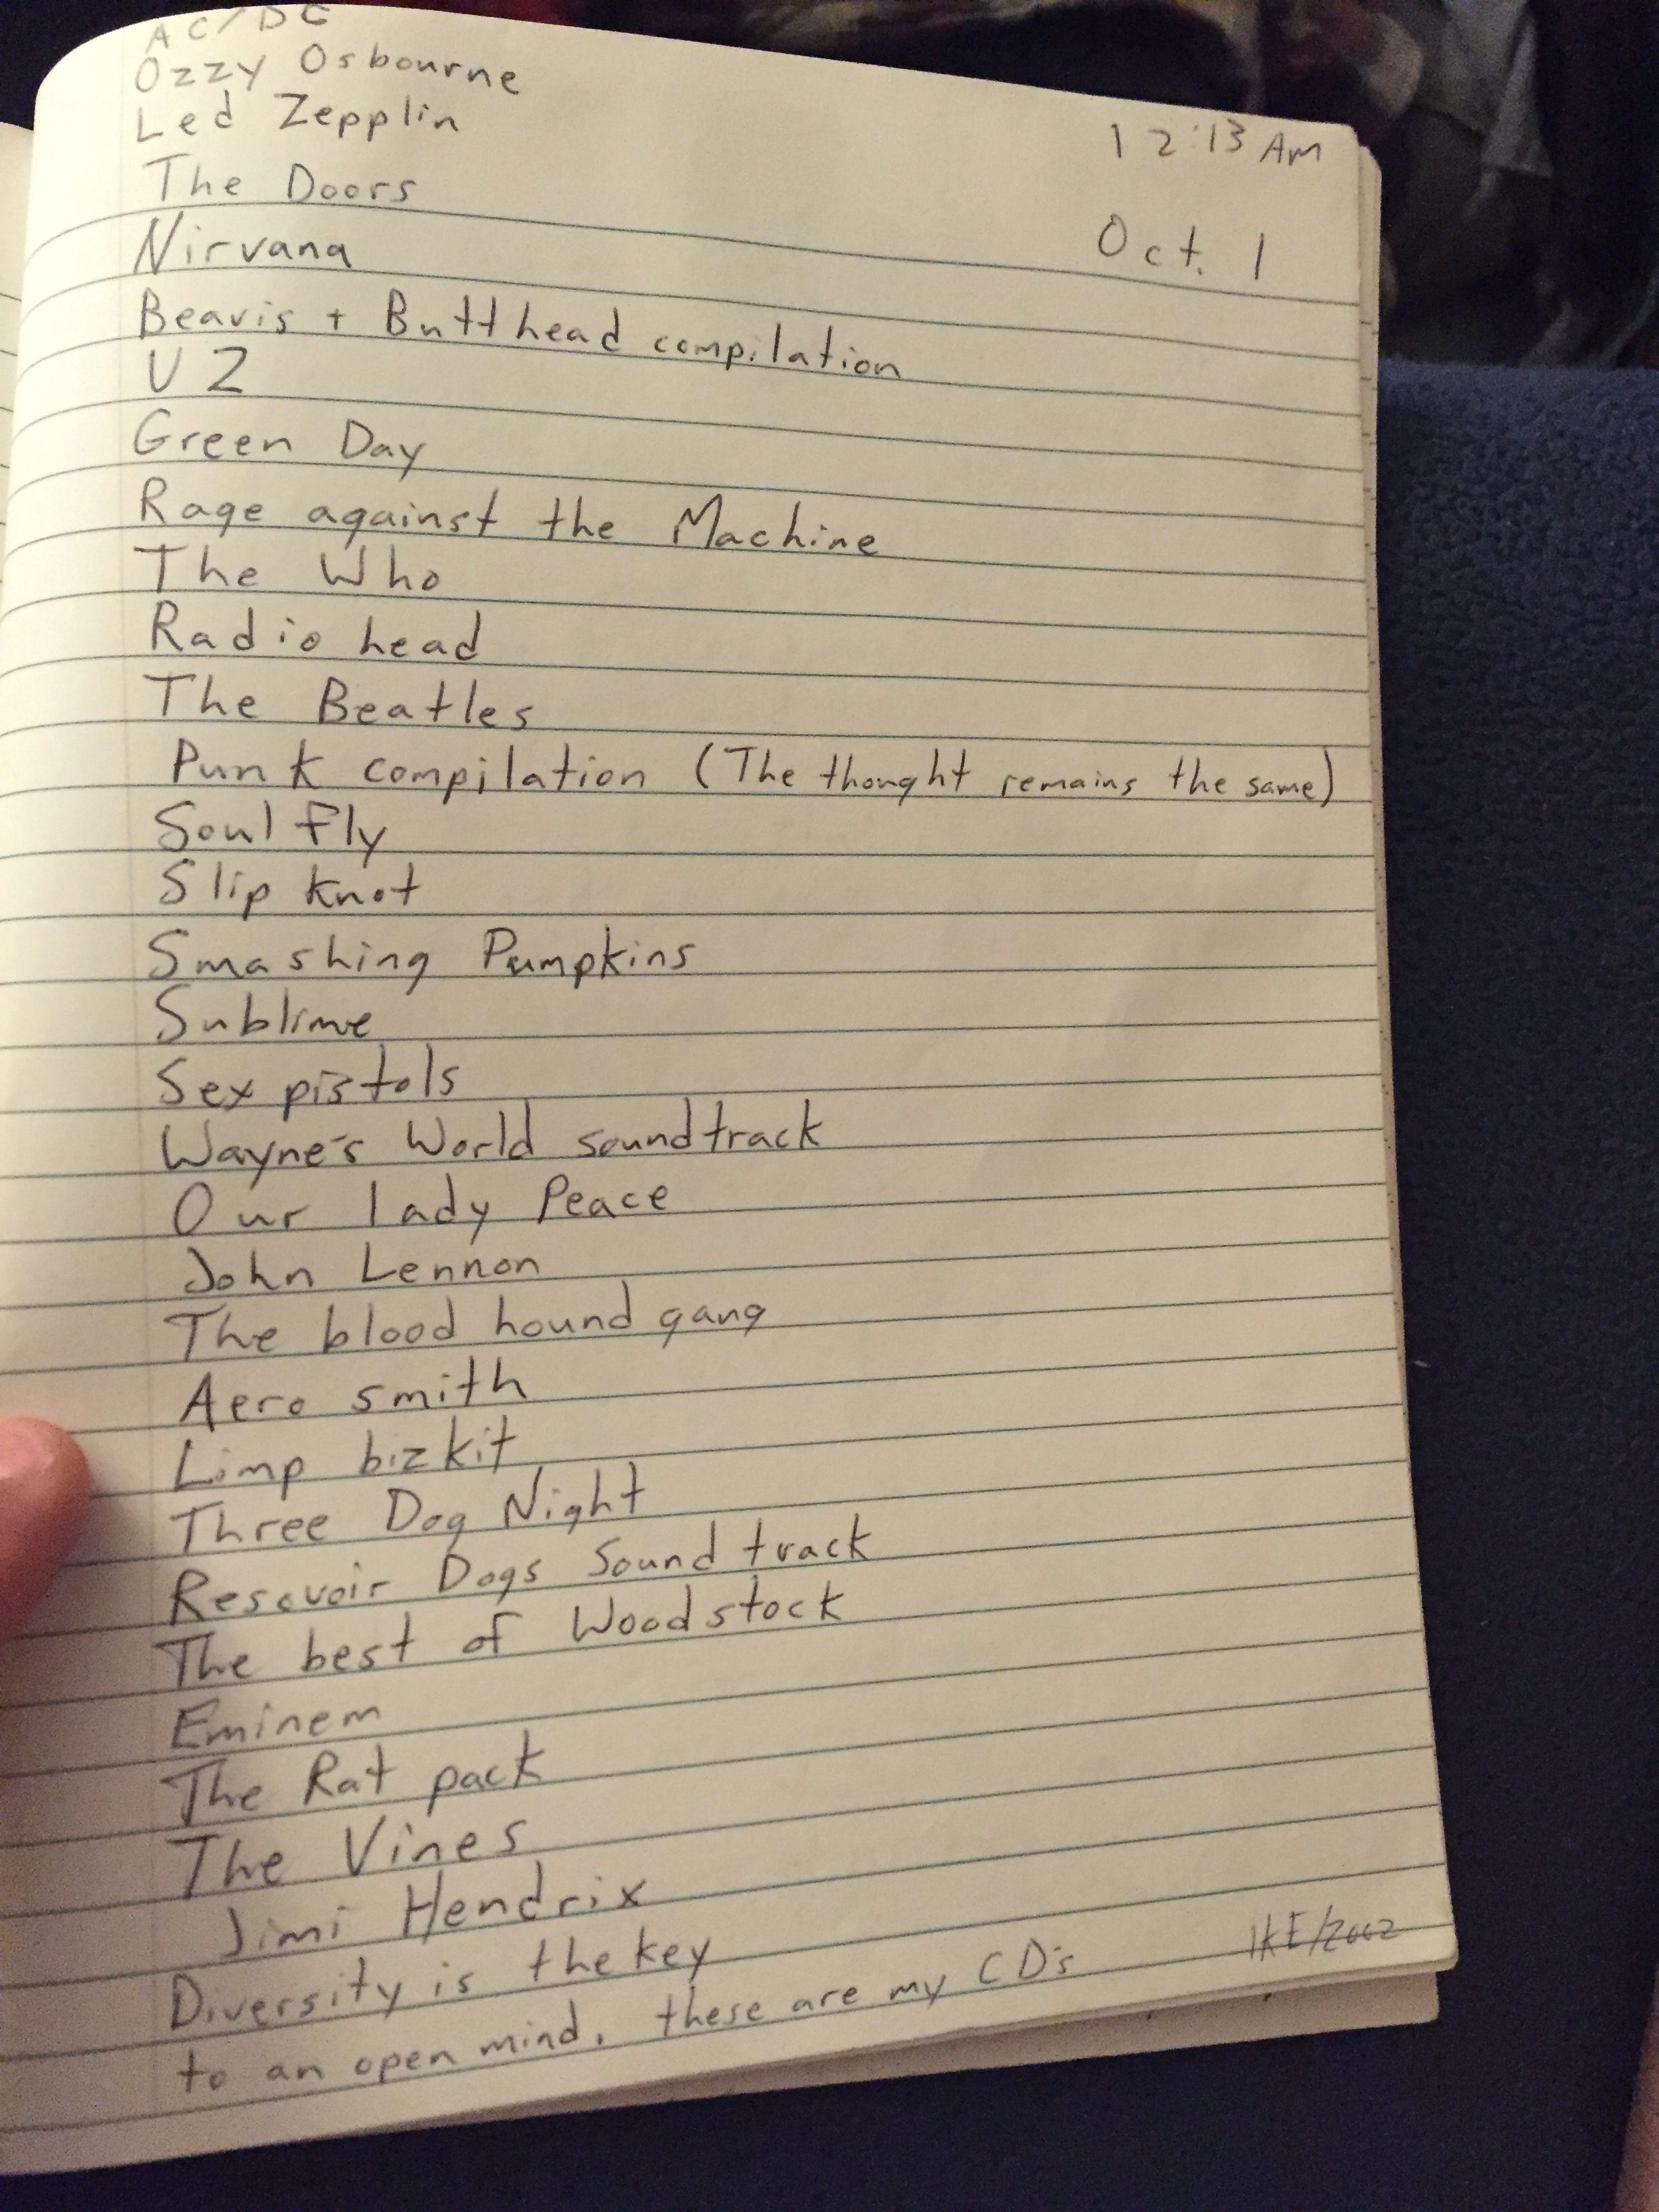 AC/DC
Ozzy Osbourne
Led Zepplin
12:13 AM
The Doors
Oct. 1
Nirvana
Beavis + Butthead compilation
U2
Green Day
Rage against the Machine
The Who
Radio head
The Beatles
Punk compilation (The thought remains the same)
Soul fly
Slip knot
Smashing Pumpkins
Sublime
Sex pistols
Wayne's World soundtrack
Our lady Peace
John Lennon
The blood hound gang
Aero smith
Limp bizkit
Three Dog Night
Resevoir Dogs Sound track
The best of Woodstock
Eminem
The Rat pack
The Vines
Jimi Hendrix
Diversity is the key
to an open mind. these are my CD's
IKE/2002